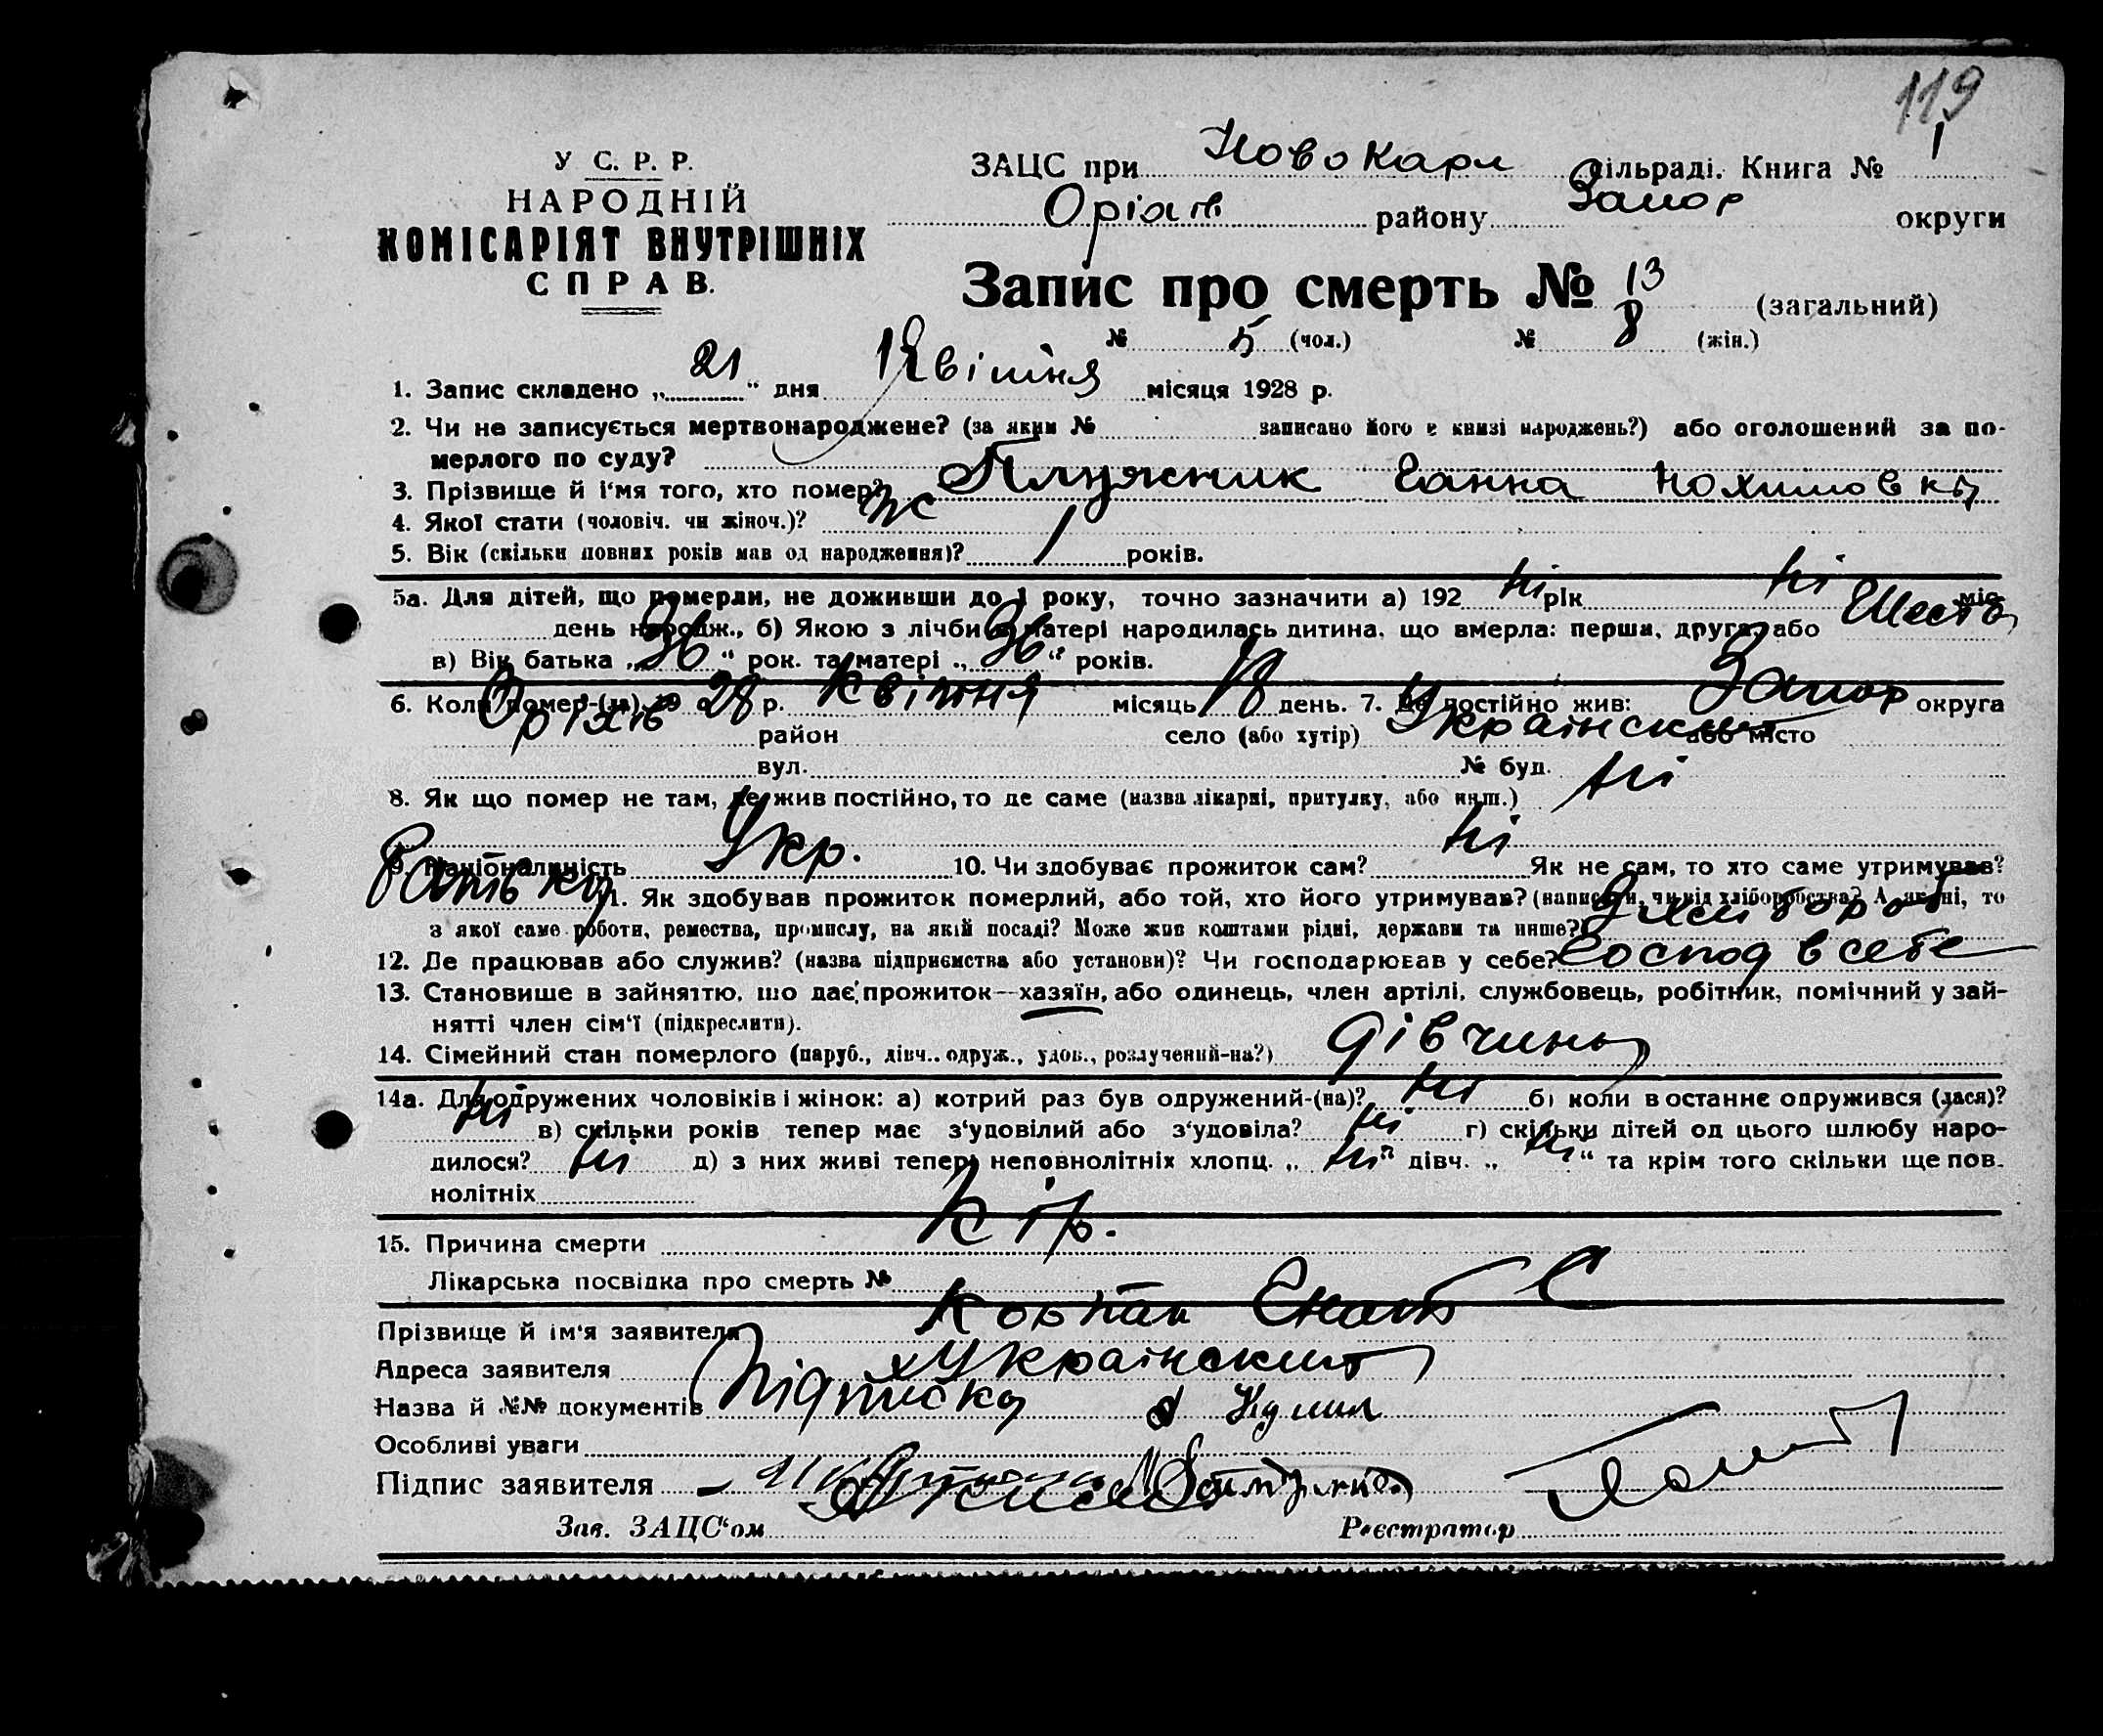 119
У С. Р. Р.
НАРОДНІЙ
КОМІСАРІЯТ ВНУТРІШНІХ
СПРАВ.
ЗАЦС при Новокарл сільраді. Книга № 1
Оріхів району Запор округи
Запис про смерть № 13 (загальний)
№ 5 (чол.) № 8 (жін.)
1. Запис складено „21“ дня Квітня місяця 1928 р.
2. Чи не записується мертвонароджене? (за яким № записано його в книзі народжень?) або оголошений за по-
мерлого по суду?
3. Прізвище й і‘мя того, хто помер? Плужник Ганна
4. Якої стати (чоловіч. чи жіноч.)? ж
5. Вік (скільки повних років мав од народження)? 1 років.
5а. Для дітей, що померли, не доживши до 1 року, точно зазначити а) 192 ні рік ні міс.
день народж., б) Якою з лічби у матері народилась дитина, що вмерла: перша, друга, або Шеста
в) Вік батька „36“ рок. та матері „36“ років.
6. Коли помер-(ла) 19 28 р. Квітня місяць 18 день. 7. Де постійно жив: Запор округа
Оріхів район село (або хутір) або місто
вул. № буд.
8. Як що помер не там, де жив постійно, то де саме (назва лікарні, притулку, або инш.) ні
9. Національність Укр. 10. Чи здобуває прожиток сам? ні Як не сам, то хто саме утримував?
Батько 11. Як здобував прожиток померлий, або той, хто його утримував? (написати, чи від хліборобства? А як ні, то
з якої саме роботи, ремества, промислу, на якій посаді? Може жив коштами рідні, держави та инше?)
12. Де працював або служив? (назва підприємства або установи)? Чи господарював у себе? господ в себе
13. Становише в зайняттю, що дає прожиток—хазяїн, або одинець, член артілі, службовець, робітник, помічний у зай-
нятті член сім‘ї (підкреслити).
14. Сімейний стан померлого (паруб., дівч.. одруж., удов., розлучений-на?) дівчина
14а. Для одружених чоловіків і жінок: а) котрий раз був одружений-(на)? ні б) коли востаннє одружився (лася)?
ні в) скільки років тепер має з‘удовілий або з‘удовіла? ні г) скільки дітей од цього шлюбу наро-
дилося? ні д) з них живі тепер: неповнолітніх хлопц. „ні“ дівч. „ні“ та крім того скільки ще пов.
нолітніх
15. Причина смерти Кір.
Лікарська посвідка про смерть №
Прізвище й ім‘я заявителя
Адреса заявителя
Назва й №№ документів
Особливі уваги
Підпис заявителя
Зав. ЗАЦС‘ом Реєстратор